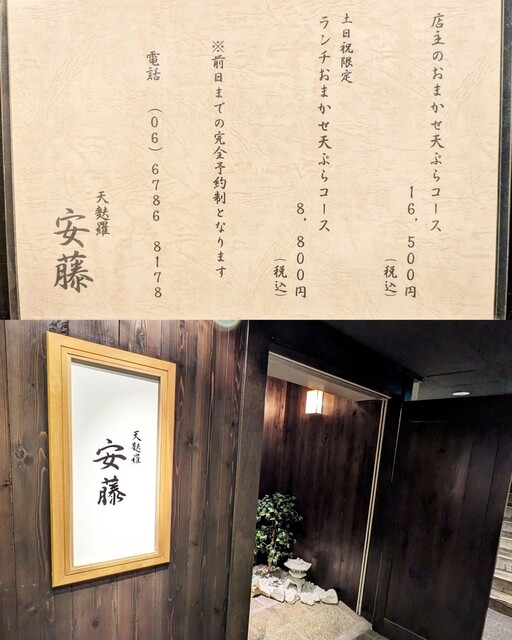 店主のおまかせ天ぷらコース
16,500円
(税込)
土日祝限定
ランチおまかせ天ぷらコース
8,800円
(税込)
※前日までの完全予約制となります
電話 (06)6786 8178
天麩羅
安藤
天麩羅
安藤